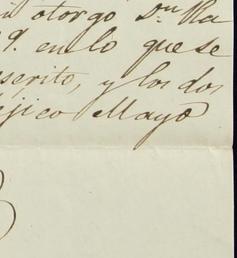 otorgo Dn. Ra
9. en lo que se
scrito, y los dos
éjico Mayo